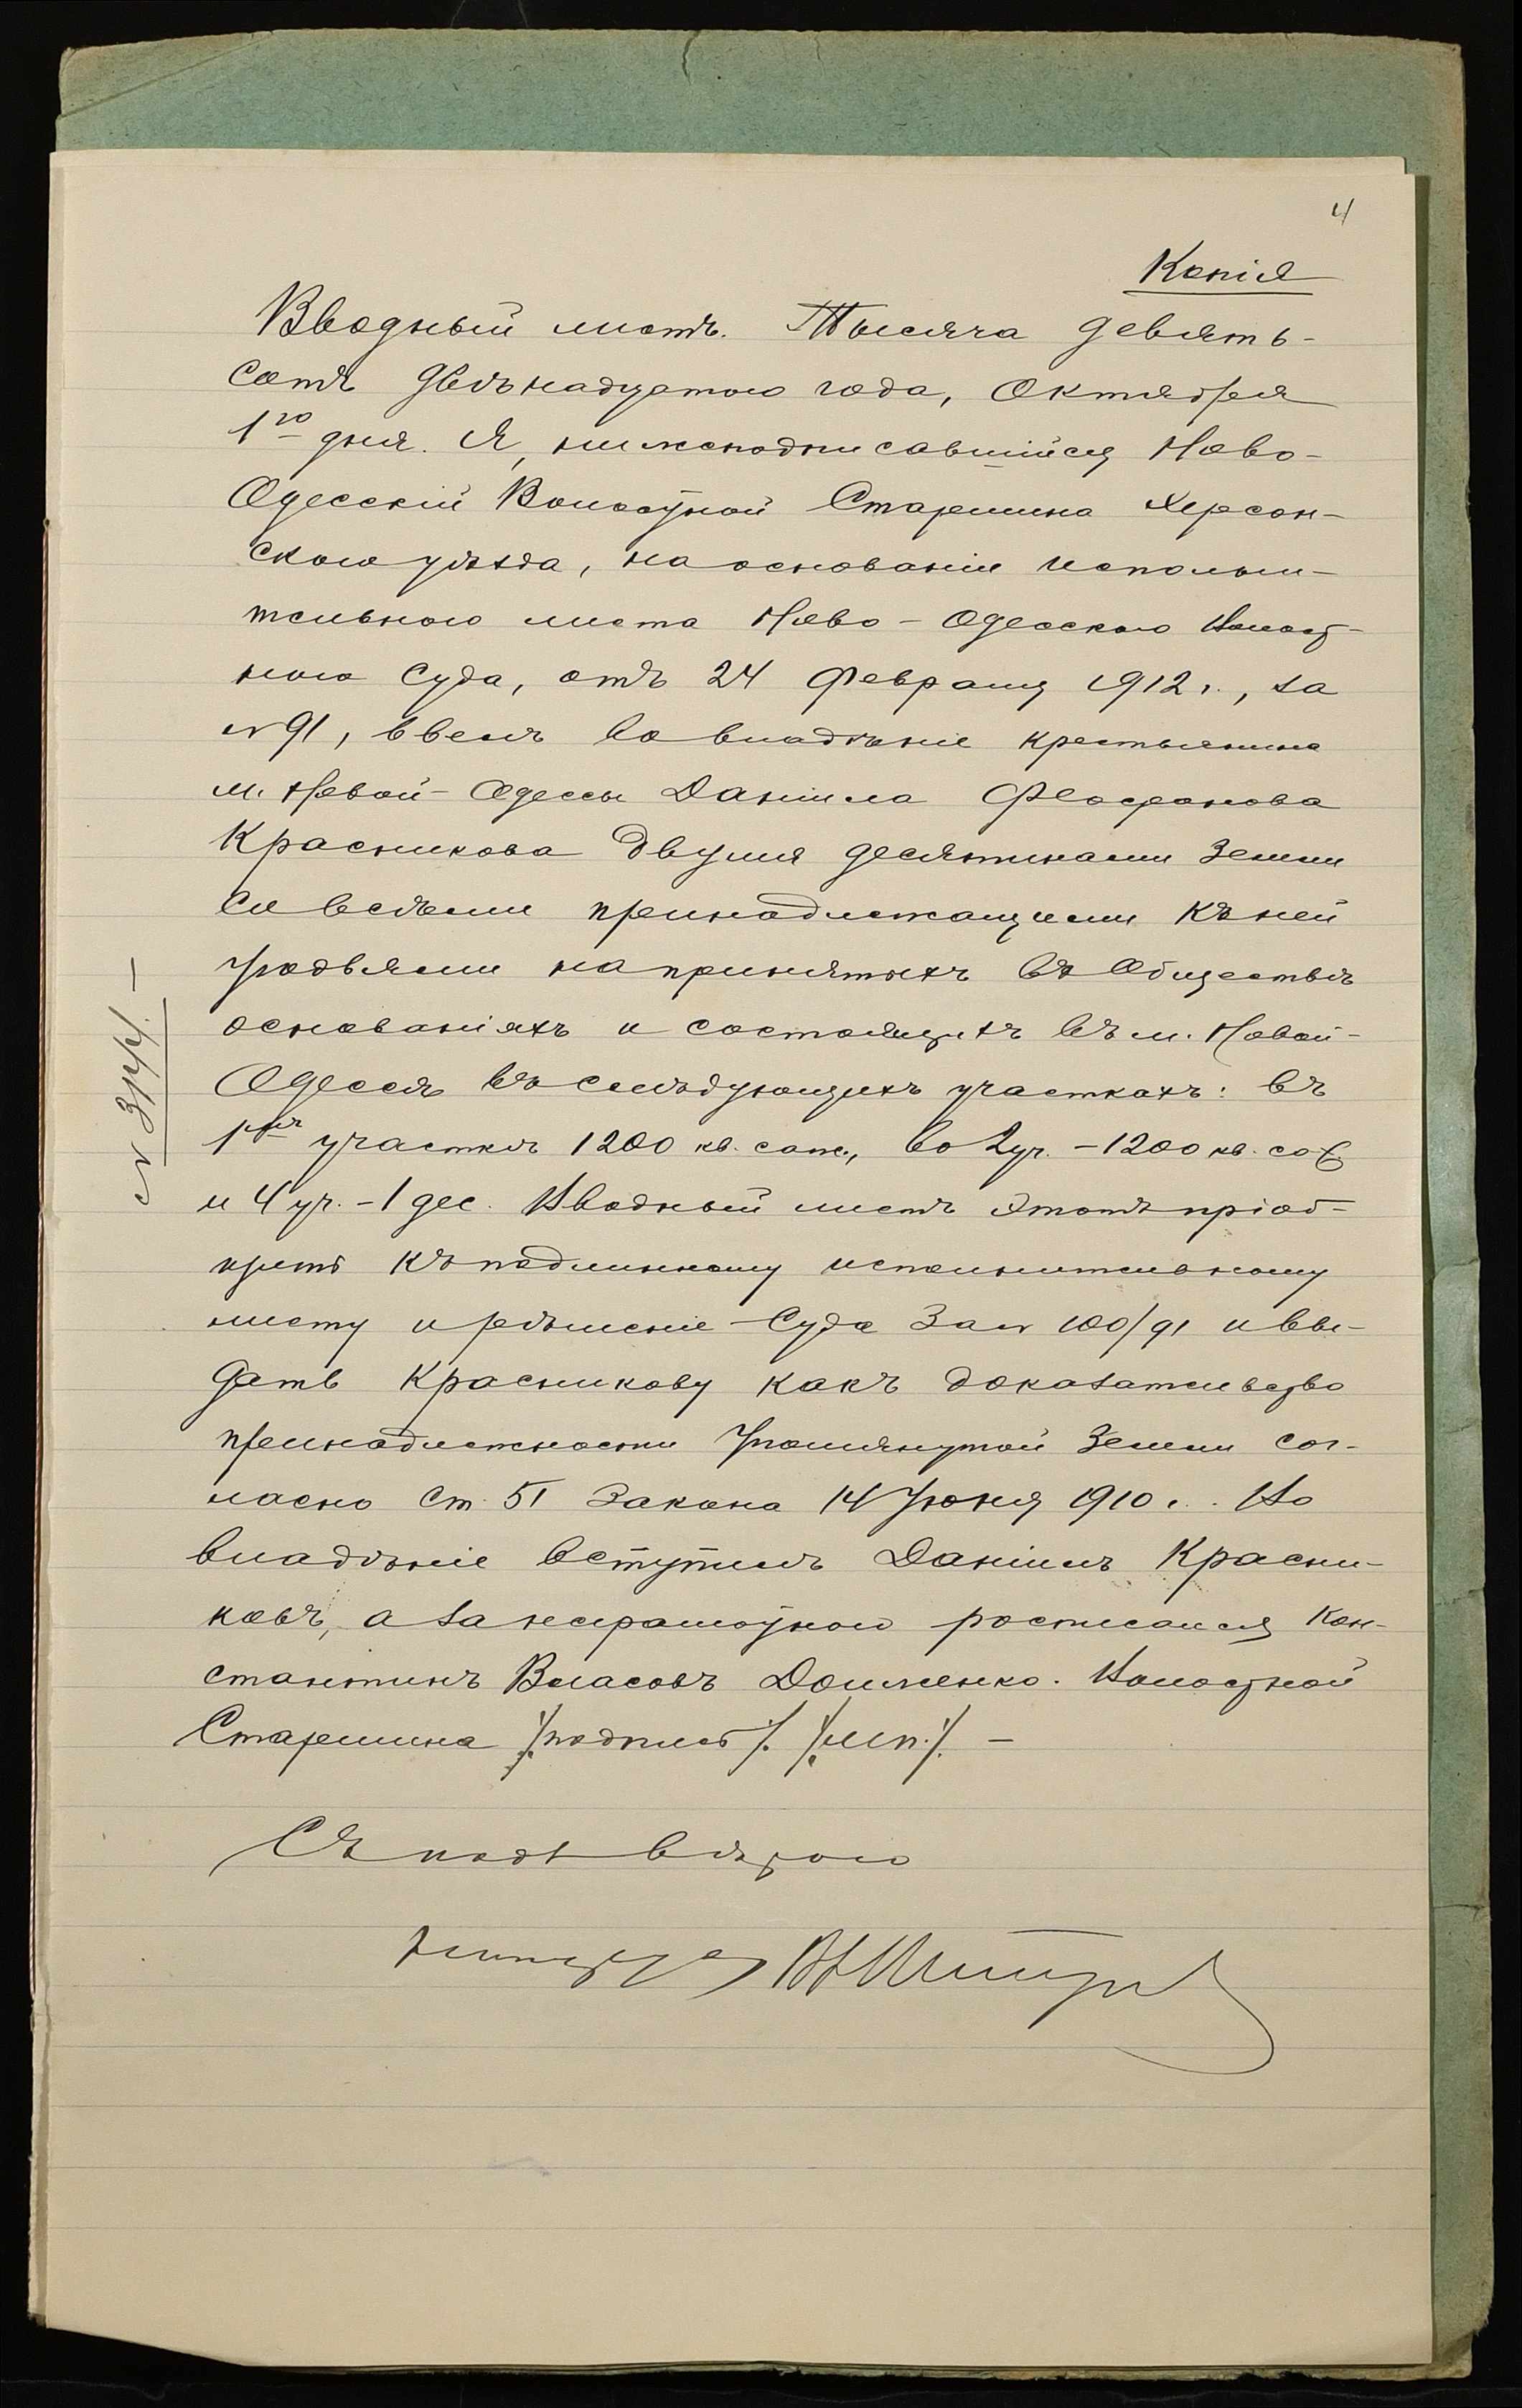 4
Копія
Вводный листъ. Тысяча девять-
сотъ двѣнадцатого года, Октября
1го дня. Я, нижеподписавшійся Ново-
Одесскій Волостной Старшина Херсон-
скаго уѣзда, на основаніи исполни-
тельного листа Ново-Одесского Волост-
ного Суда, отъ 24 Февраля 1912 г., за
№ 91, ввелъ во владѣніе крестьянина
м. Новой-Одессы Даніила Феофанова
Красникова двумя десятинами земли
со всѣми принадлежащими къ ней
угодьями на принятыхъ въ Обществѣ
основаніяхъ и состоящихъ въ м. Новой-
Одессѣ въ слѣдующихъ участкахъ: въ
1мъ участкѣ 1200 кв. саж., во 2 уч. - 1200 кв. саж.
и 4 уч. - 1 дес. Вводный листъ этотъ пріоб-
щить къ подлинному исполнительному
листу и рѣшеніе Суда за № 100/91 и вы-
дать Красникову какъ доказательство
принадлежности упомянутой земли сог-
ласно ст. 51 Закона 14 Іюня 1910 г. Во
владѣніе вступилъ Даніилъ Красни-
ковъ, а за неграмотного росписался Кон-
стантинъ Власовъ Долженко. Волостной
Старшина /подпись/. /м.п./. -
Съ подл. вѣрно
№ 3744. -